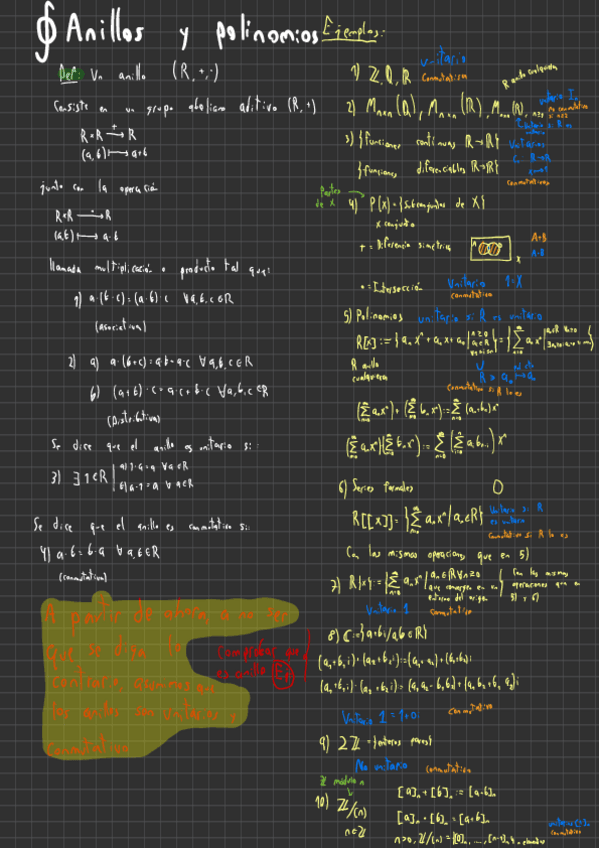 ∮ Anillos y polinomios
Def: Un anillo (R,+,·)
Consiste en un grupo abeliano aditivo (R,+)
R×R ⟶ R
+
(a,b) ⟼ a+b
junto con la operación
R×R ⟶ R
(a,b) ⟼ a·b
llamada multiplicación o producto tal que:
1) a·(b·c)=(a·b)·c ∀a,b,c∈R
(asociativa)
2) a) a·(b+c)=a·b+a·c ∀a,b,c∈R
b) (a+b)·c=a·c+b·c ∀a,b,c∈R
(Distributiva)
Se dice que el anillo es unitario si:
3) ∃ 1∈R | a) 1·a=a ∀a∈R
b) a·1=a ∀a∈R
Se dice que el anillo es conmutativo si:
4) a·b=b·a ∀a,b∈R
(conmutativa)
A partir de ahora a no ser
que se diga lo
contrario, asumimos que
los anillos son unitarios y
conmutativos
Comprobar que
es anillo Ej
Ejemplos:
1) ℤ, ℚ, ℝ
unitario
conmutativos
R anillo cualquiera
2) Mn×n(ℚ), Mn×n(ℝ), Mn×n(R), n≥2
unitario In
no conmutativo
si n≥2
3) {funciones continuas ℝ→ℝ}
{funciones diferenciables ℝ→ℝ}
Unitarios
conmutativos
Partes
de X
4) P(X)={Subconjuntos de X}
X conjunto
+ = Diferencia simétrica
A+B
A·B
X
· = Intersección
Unitario 1=X
conmutativo
5) Polinomios unitario si R es unitario
R[x] := {anxⁿ+...a1x+a0 | n≥0 ai∈R
R anillo
cualquiera
conmutativo si R lo es
(∑ anxⁿ)+(∑ bnxⁿ):=∑(an+bn)xⁿ
(∑ anxⁿ)(∑ bnxⁿ):=∑(∑ aibn-i)xⁿ
6) Series formales
R[[x]]={∑ anxⁿ / an∈R}
Unitario si R
es unitario
conmutativo si R lo es
Con las mismas operaciones que en 5)
7) R{x}={∑ anxⁿ | an∈R ∀n≥0
que convergen en un
entorno del origen
Con las mismas
operaciones que en
5) y 6)
Unitario 1 conmutativo
8) ℂ:={a+bi/a,b∈ℝ}
(a1+b1i)+(a2+b2i)=(a1+a2)+(b1+b2)i
(a1+b1i)·(a2+b2i)=(a1a2-b1b2)+(a1b2+b1a2)i
Unitario 1=1+0i conmutativo
9) 2ℤ={enteros pares}
No unitario conmutativo
ℤ módulo n
10) ℤ/(n)
n∈ℤ
[a]n+[b]n:=[a+b]n
[a]n·[b]n=[a·b]n
n>0, ℤ/(n)={[0]n,...,[n-1]n} n elementos
unitario [1]n
conmutativo